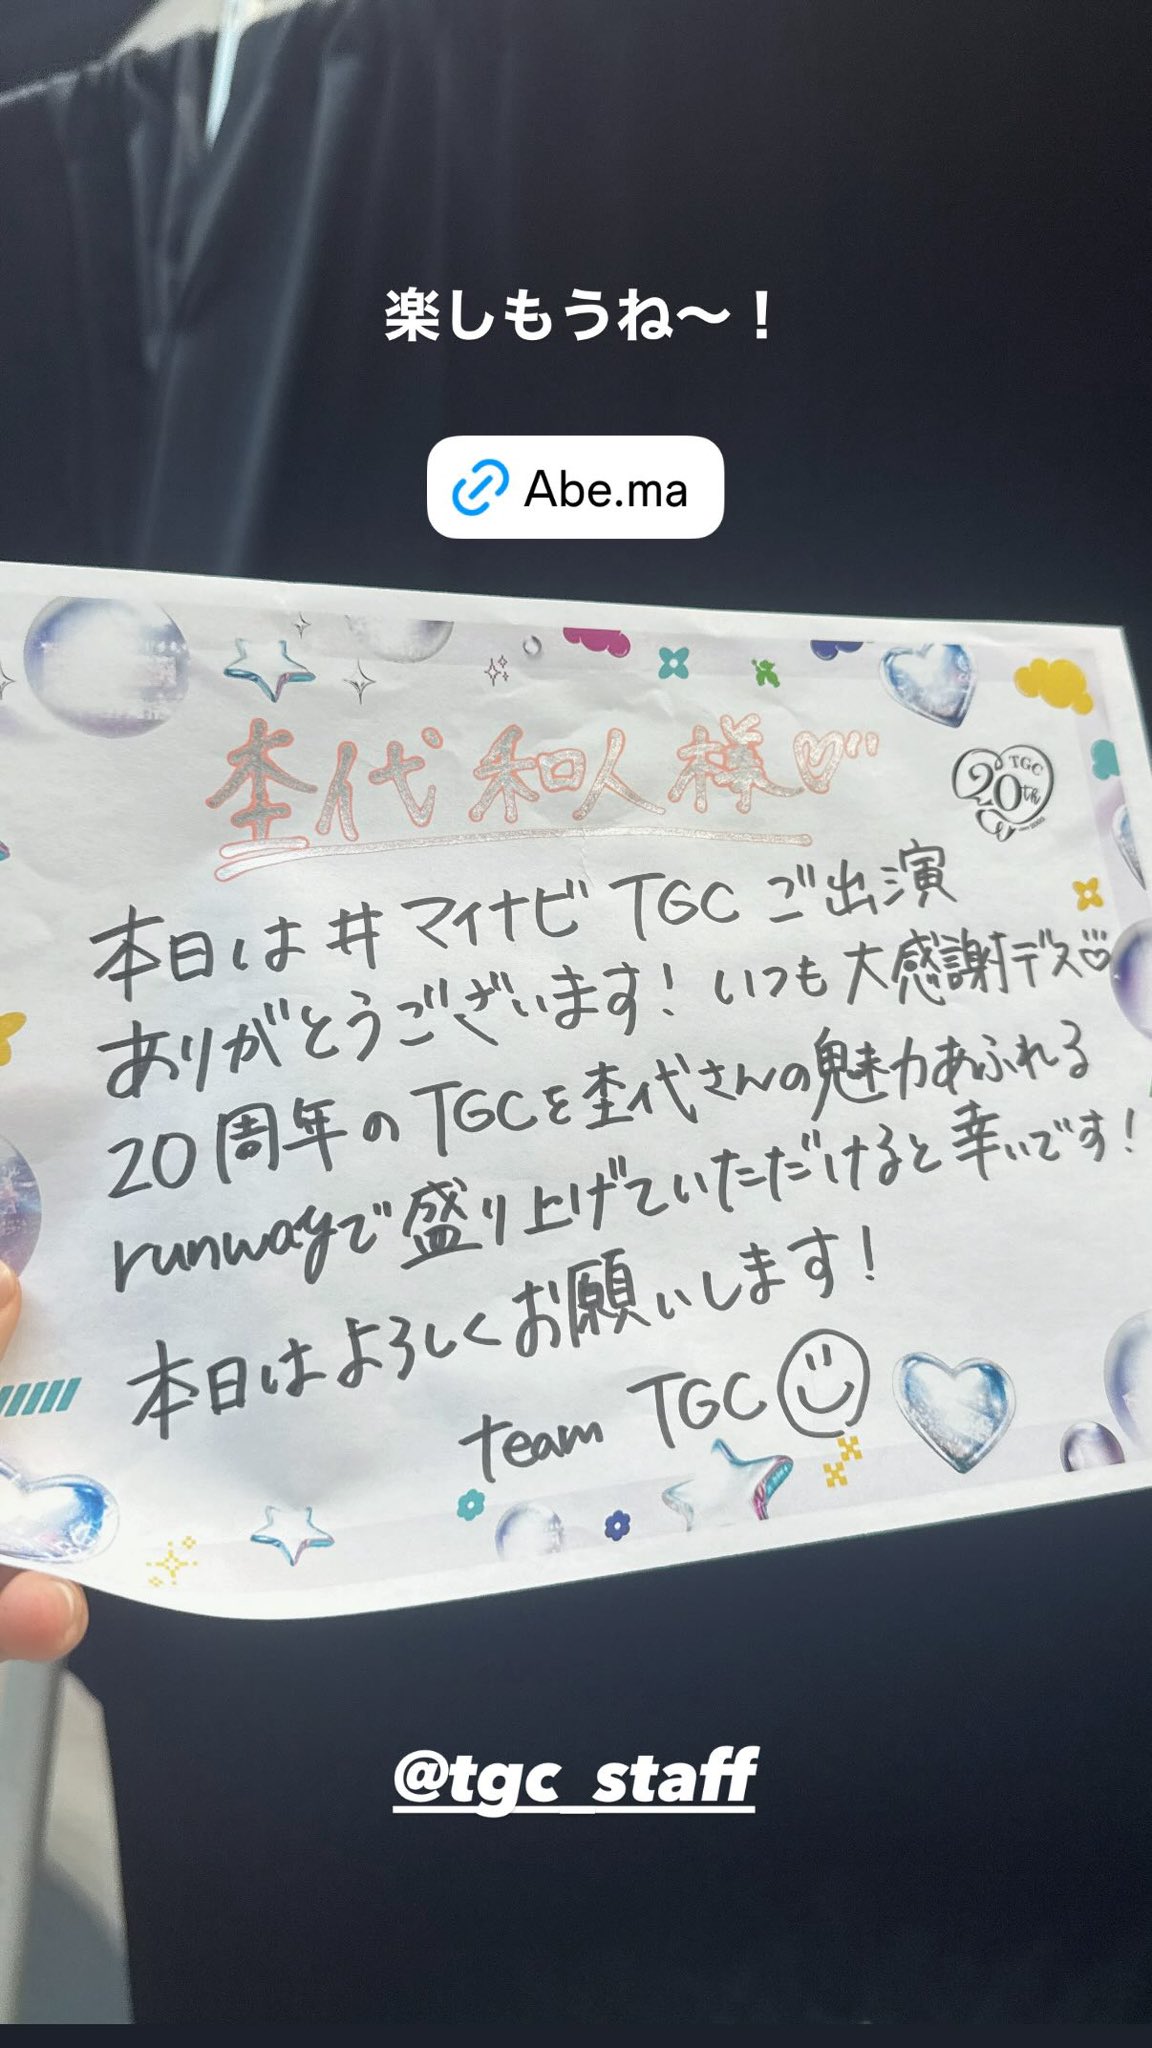 楽しもうね〜！
Abe.ma
杢代和人様♡
TGC
20th
本日は#マイナビTGCご出演
ありがとうございます！いつも大感謝デス♡
20周年のTGCを杢代さんの魅力あふれる
runwayで盛り上げていただけると幸いです！
本日はよろしくお願いします！
team TGC
@tgc_staff